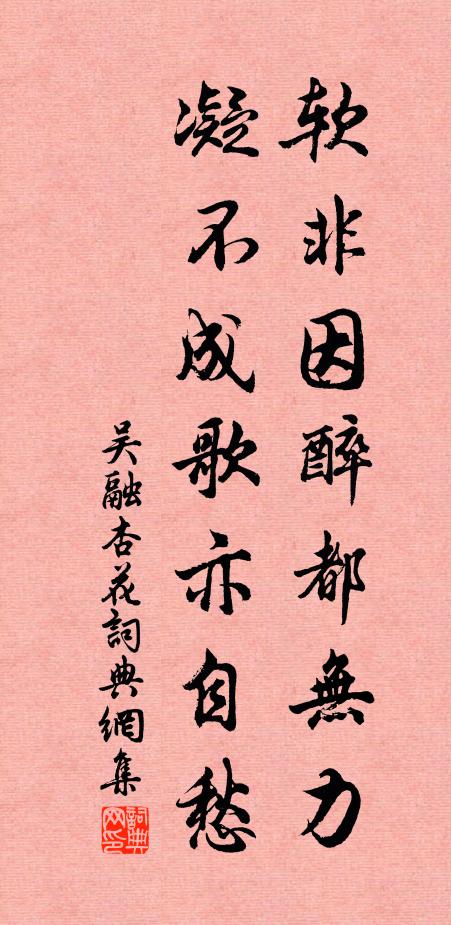 软非因醉都無力
凝不成歌亦自愁
吴融杏花詞典網集
詞典网印